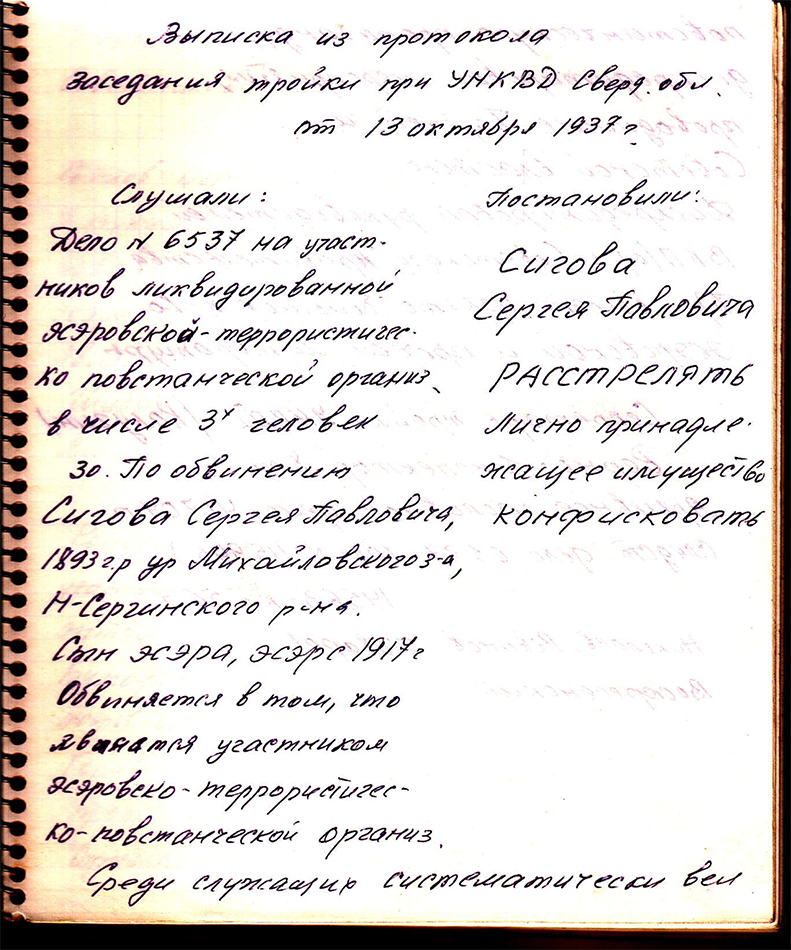 Выписка из протокола
заседания тройки при УНКВД Сверд. обл.
от 13 октября 1937 г.
Слушали:
Дело № 6537 на участ-
ников ликвидированной
эсэровской-террористичес-
ко повстанческой организ.
в числе 3х человек
30. По обвинению
Сигова Сергея Павловича,
1893 г.р ур Михайловского з-а,
Н-Сергинского р-на.
Сын эсэра, эсэр с 1917 г
Обвиняется в том, что
является участником
эсэровско-террористичес-
ко-повстанческой организ.
Среди служащих систематически вел
Постановили:
Сигова
Сергея Павловича
РАССТРЕЛЯТЬ
Лично принадле-
жащее имущество
конфисковать